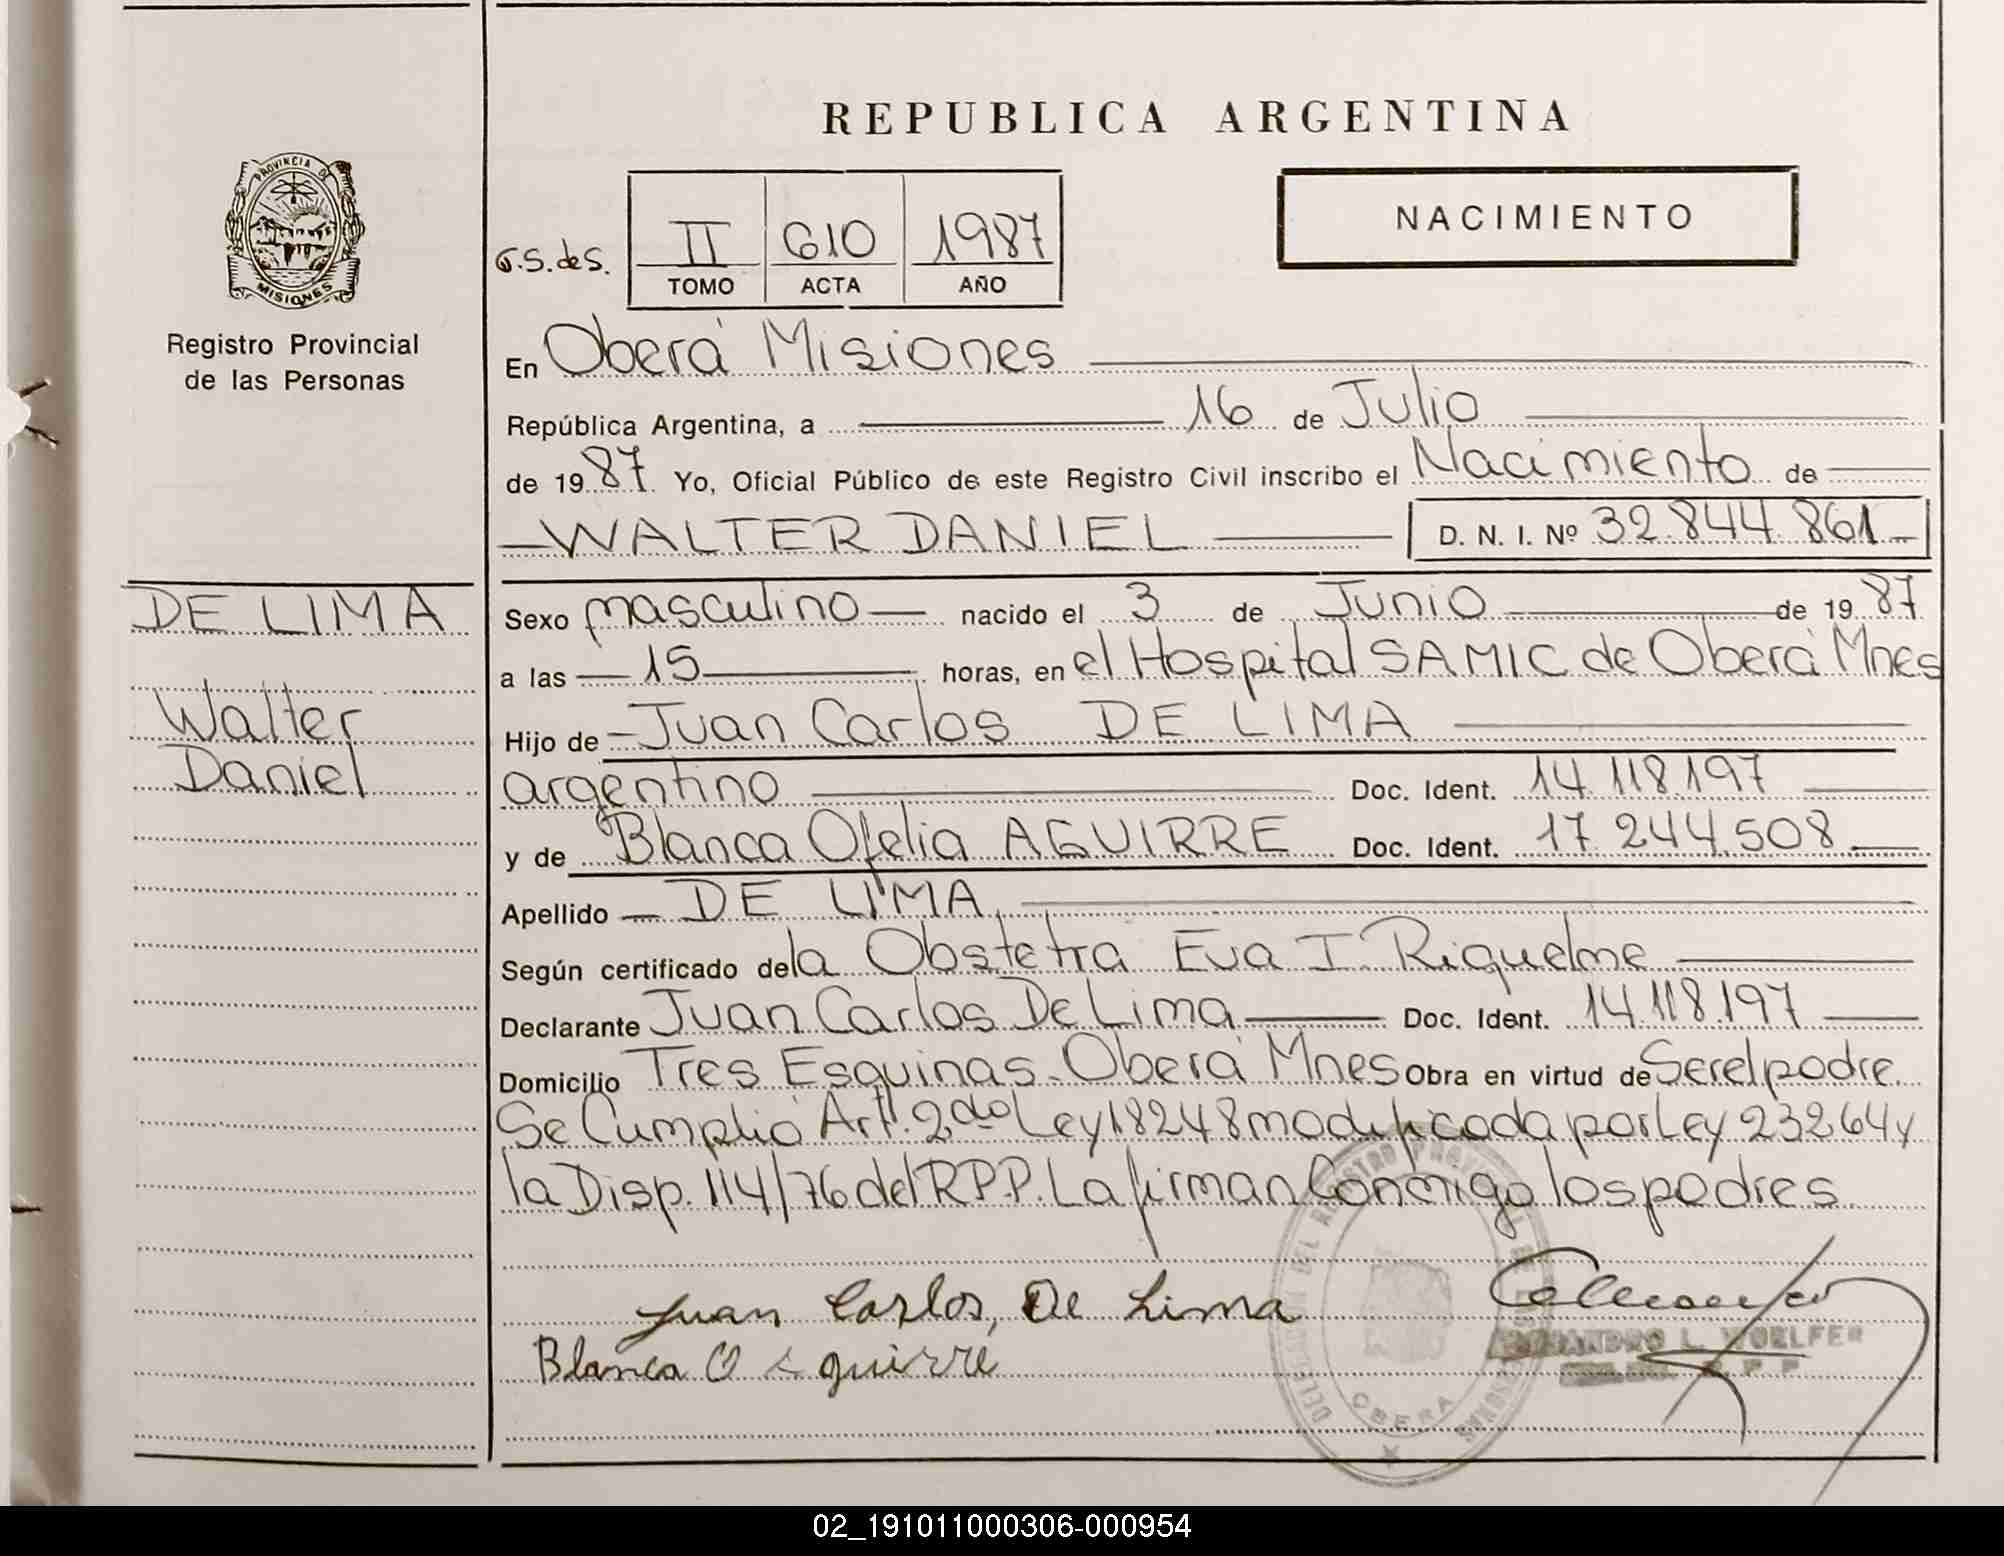 REPUBLICA ARGENTINA
NACIMIENTO
PROVINCIA DE
MISIONES
Registro Provincial
de las Personas
G.S.deS.
II 610 1987
TOMO ACTA AÑO
En Oberá Misiones
República Argentina, a 16 de Julio
de 1987 Yo, Oficial Público de este Registro Civil inscribo el Nacimiento de
WALTER DANIEL D. N. I. Nº 32.844.861
DE LIMA
Walter
Daniel
Sexo masculino nacido el 3 de Junio de 1987
a las 15 horas, en el Hospital SAMIC de Oberá Mnes
Hijo de Juan Carlos DE LIMA
argentino Doc. Ident. 14.118.197
y de Blanca Ofelia AGUIRRE Doc. Ident. 17.244.508
Apellido DE LIMA
Según certificado de la Obstetra Eva I. Riquelme
Declarante Juan Carlos De Lima Doc. Ident. 14.118.197
Domicilio Tres Esquinas - Oberá Mnes Obra en virtud de Ser el padre
Se Cumplió Art. 2do Ley 18248 modificada por Ley 23264 y
la Disp. 114/76 del R.P.P. La firman Conmigo los padres.
Juan Carlos, De Lima
Blanca O Aguirre
L. WOELFER
OBERA
02_191011000306-000954